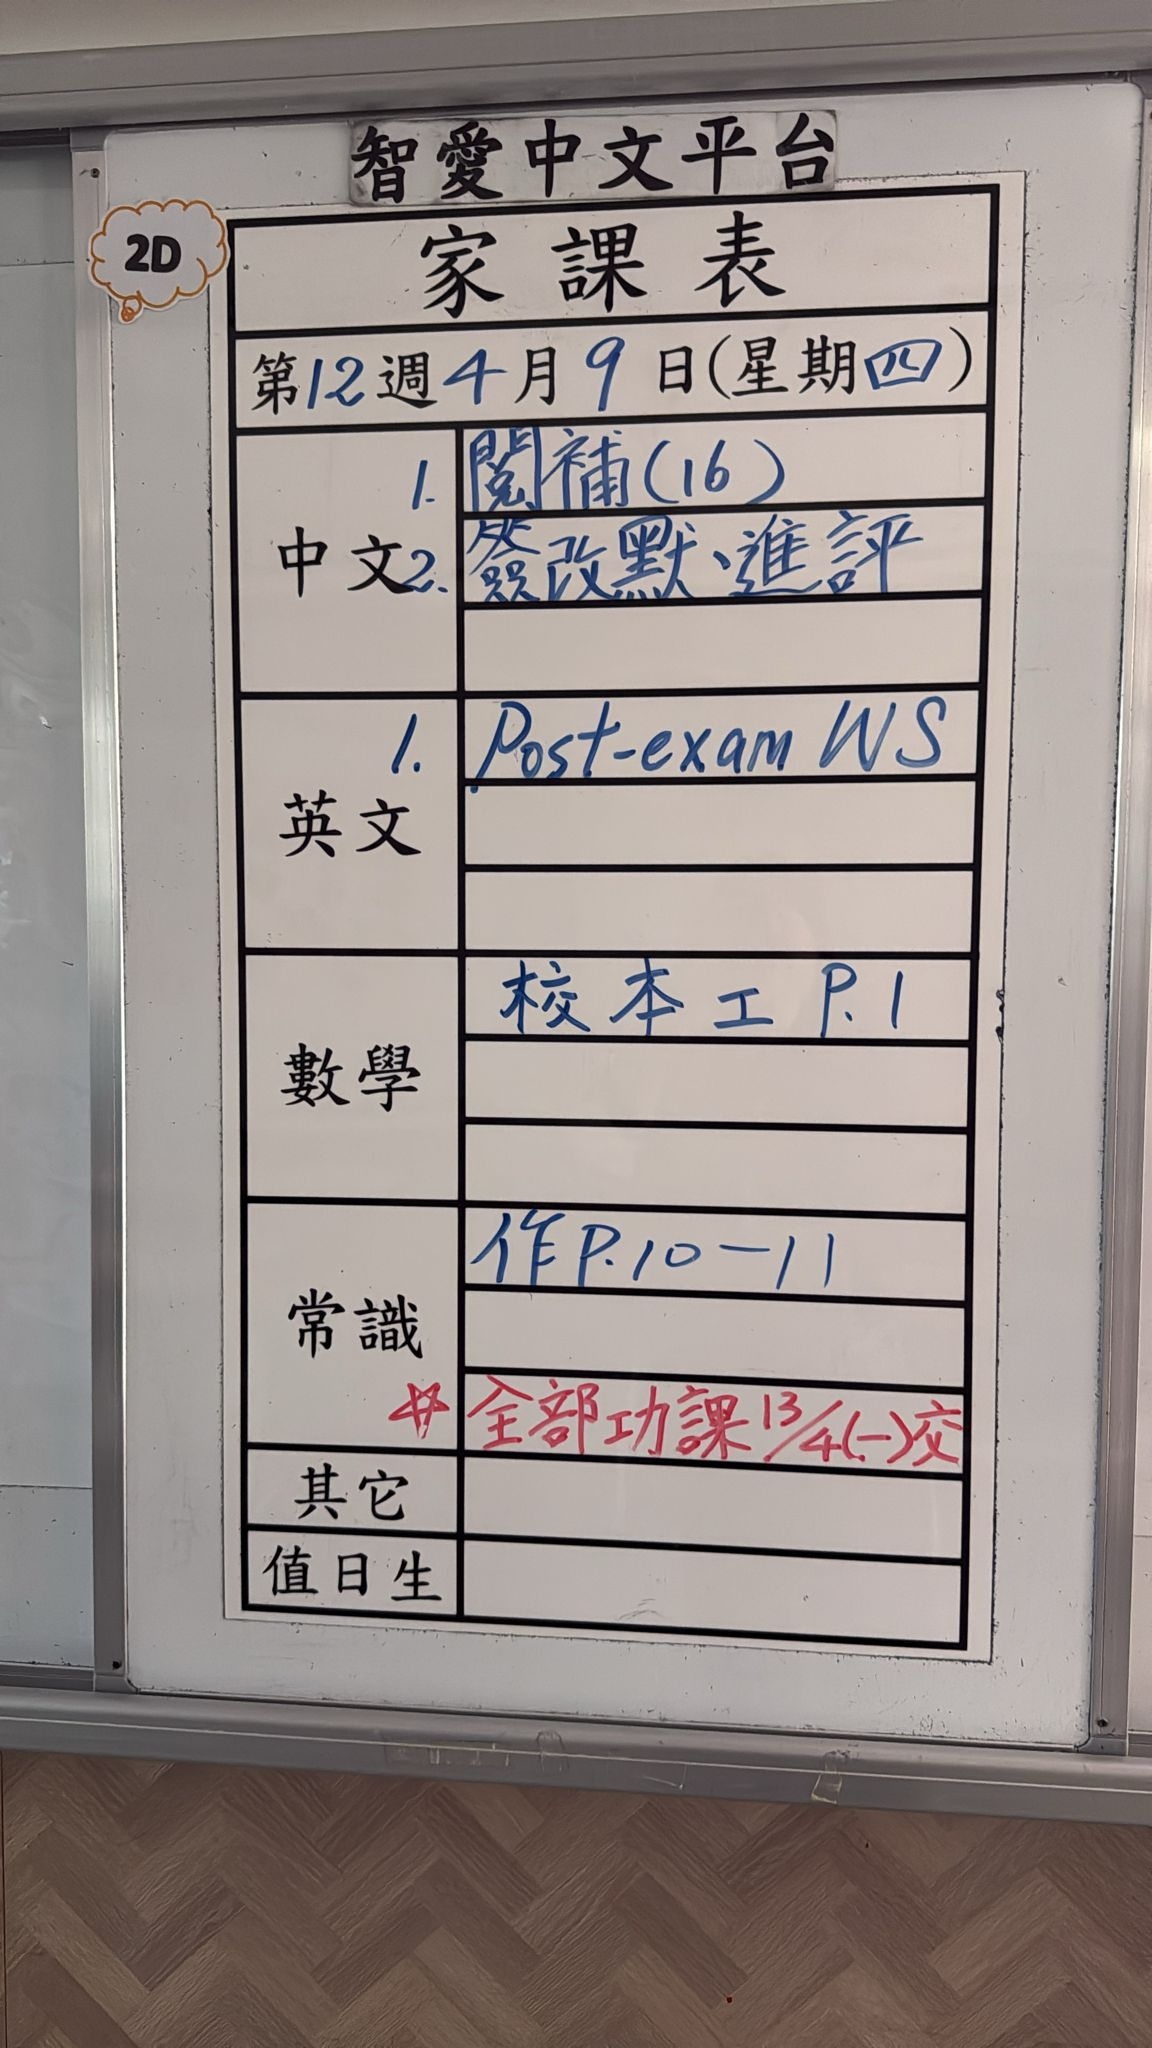 智愛中文平台
2D
家課表
第12週4月9日(星期四)
中文
1. 閱補(16)
2. 簽改默、進評
英文
1. Post-exam WS
數學
校本工 P.1
常識
作P.10-11
☆ 全部功課13/4(一)交
其它
值日生